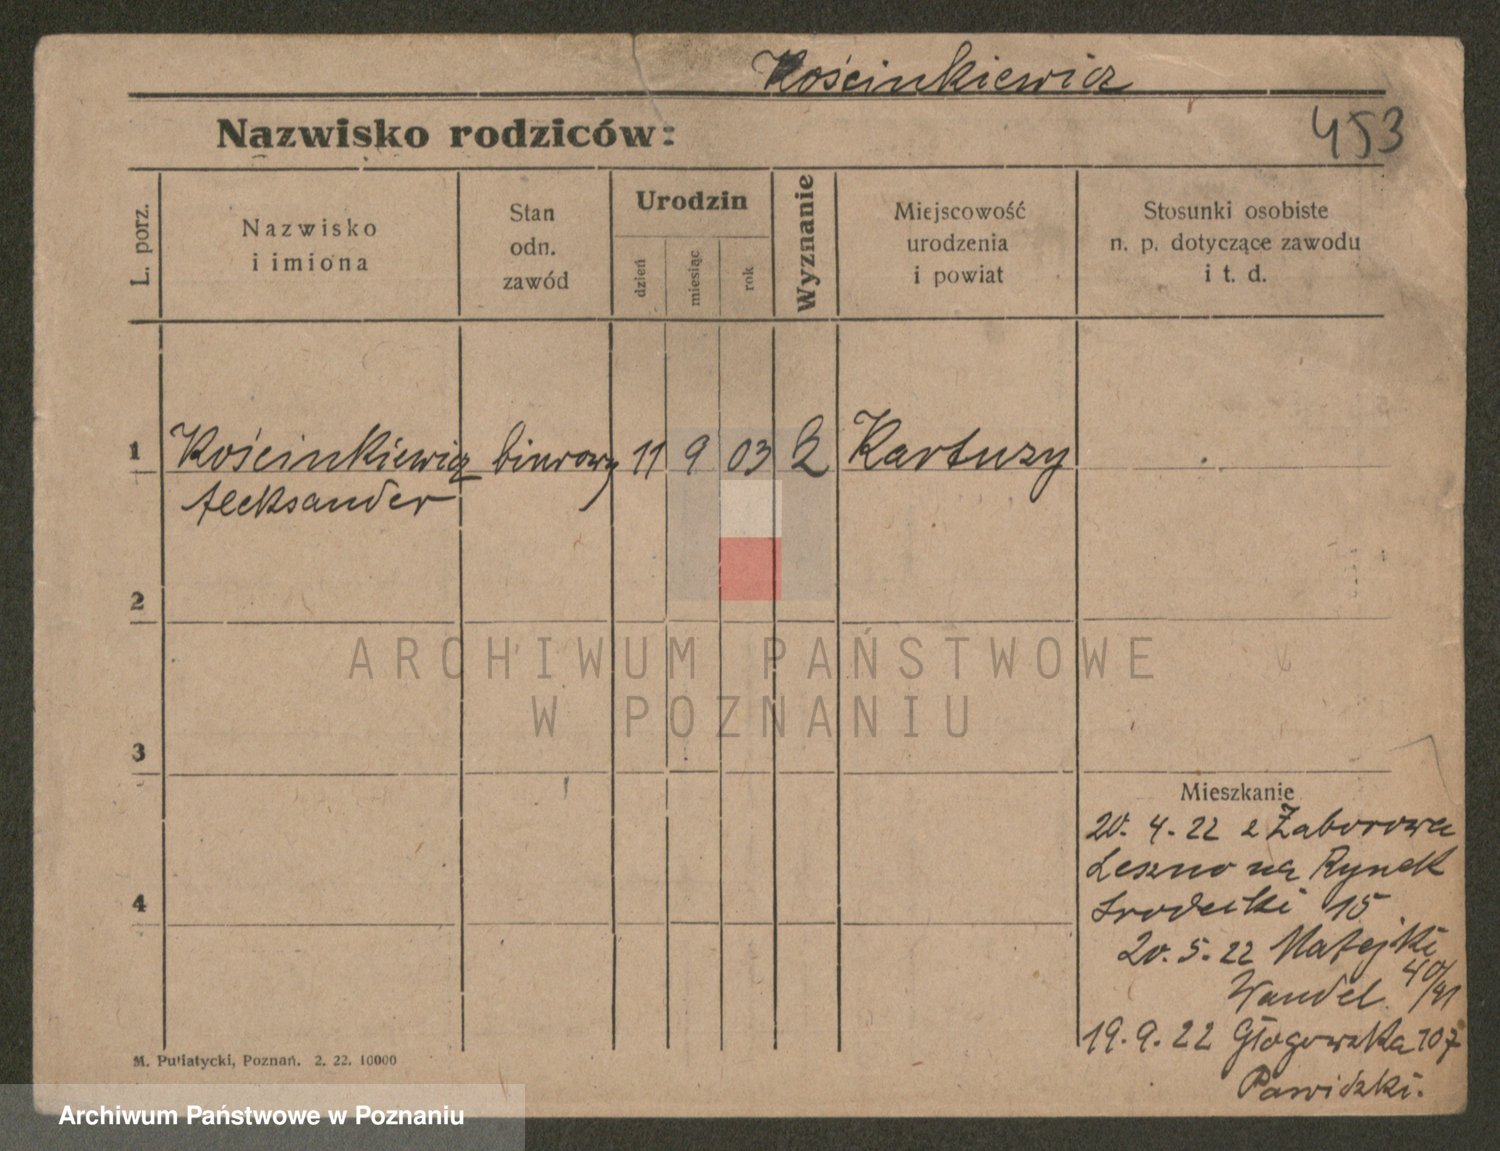 Kościnkiewicz
453
Nazwisko rodziców:
L. porz.
Nazwisko
i imiona
Stan
odn.
zawód
Urodzin
dzień
miesiąc
rok
Wyznanie
Miejscowość
urodzenia
i powiat
Stosunki osobiste
n. p. dotyczące zawodu
i t. d.
1 Kościnkiewicz biurowy 11 9 03 Kartuzy
Aleksander
2
3
4
ARCHIWUM PAŃSTWOWE
W POZNANIU
Mieszkanie
20. 4. 22 z Zaborowa
Leszno na Rynek
Srodecki 15
20. 5. 22 Matejki
40/41
Wandel
19. 9. 22 Głogowska 107
Pawidzki.
M. Putiatycki, Poznań. 2. 22. 10000
Archiwum Państwowe w Poznaniu